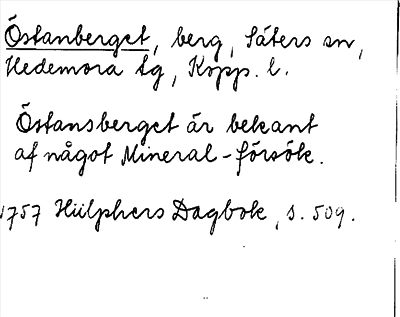 Östanberget, berg, Säters sn,
Hedemora tg, Kopp. l.
Östansberget är bekant
af något Mineral-försök.
1757 Hülphers Dagbok, s. 509.